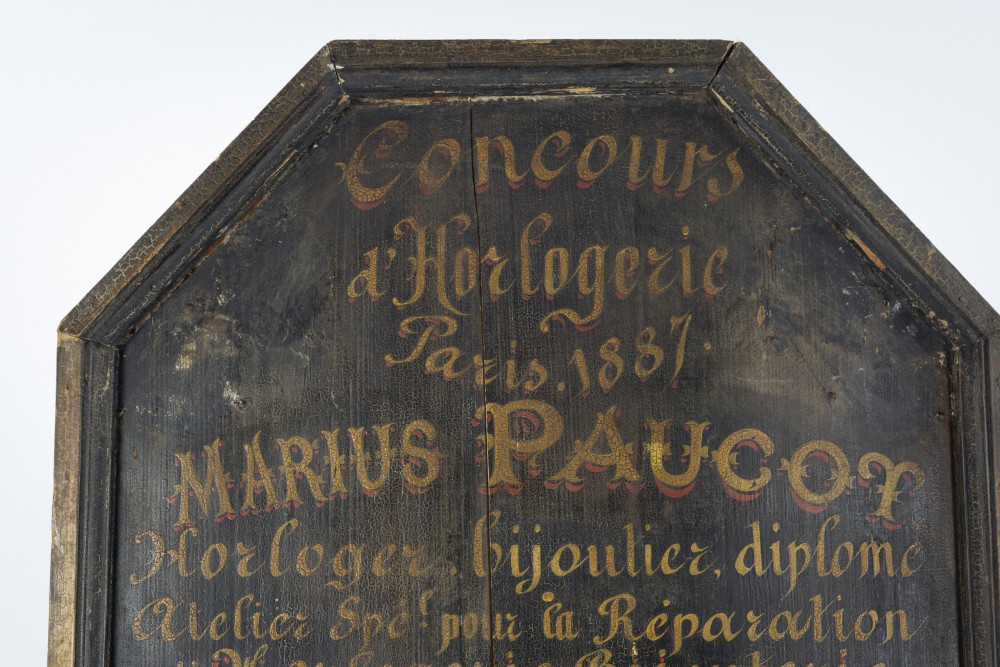 Concours
d'Horlogerie
Paris. 1887.
MARIUS PAUCOT
Horloger, bijoutier, diplomé
Atelier Spé.t pour la Réparation
Horlogerie Bijouterie